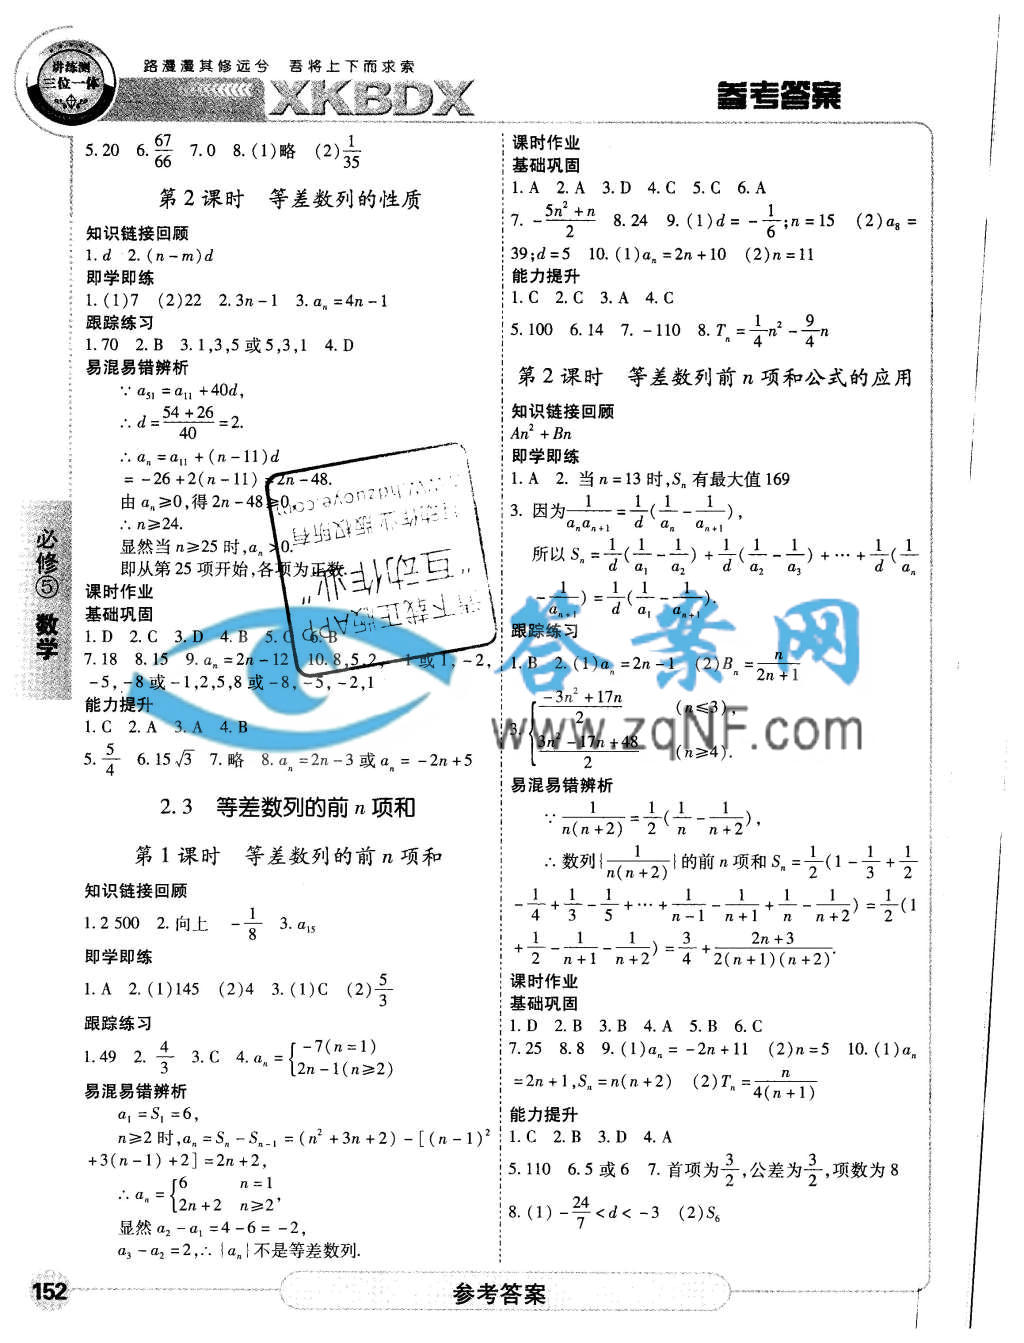 讲练测
三位一体
路漫漫其修远兮 吾将上下而求索
XKBDX
参考答案
必修⑤ 数学
5.20 6.67/66 7.0 8.(1)略 (2)1/35
第2课时 等差数列的性质
知识链接回顾
1.d 2.(n-m)d
即学即练
1.(1)7 (2)22 2.3n-1 3.aₙ=4n-1
跟踪练习
1.70 2.B 3.1,3,5或5,3,1 4.D
易混易错辨析
∵a₅₁=a₁₁+40d,
∴d=(54+26)/40=2.
∴aₙ=a₁₁+(n-11)d
=-26+2(n-11)=2n-48.
由aₙ≥0,得2n-48≥0,
∴n≥24.
显然当n≥25时,aₙ>0.
即从第25项开始,各项为正数.
课时作业
基础巩固
1.D 2.C 3.D 4.B 5.C 6.B
7.18 8.15 9.aₙ=2n-12 10.8,5,2,-1或1,-2,
-5,-8或-1,2,5,8或-8,-5,-2,1
能力提升
1.C 2.A 3.A 4.B
5.5/4 6.15√3 7.略 8.aₙ=2n-3或aₙ=-2n+5
2.3 等差数列的前n项和
第1课时 等差数列的前n项和
知识链接回顾
1.2 500 2.向上 -1/8 3.a₁₅
即学即练
1.A 2.(1)145 (2)4 3.(1)C (2)5/3
跟踪练习
1.49 2.4/3 3.C 4.aₙ={-7(n=1)
2n-1(n≥2)
易混易错辨析
a₁=S₁=6,
n≥2时,aₙ=Sₙ-Sₙ₋₁=(n²+3n+2)-[(n-1)²
+3(n-1)+2]=2n+2,
∴aₙ={6 n=1
2n+2 n≥2,
显然a₂-a₁=4-6=-2,
a₃-a₂=2,∴{aₙ}不是等差数列.
课时作业
基础巩固
1.A 2.A 3.D 4.C 5.C 6.A
7.-(5n²+n)/2 8.24 9.(1)d=-1/6;n=15 (2)a₈=
39;d=5 10.(1)aₙ=2n+10 (2)n=11
能力提升
1.C 2.C 3.A 4.C
5.100 6.14 7.-110 8.Tₙ=1/4n²-9/4n
第2课时 等差数列前n项和公式的应用
知识链接回顾
An²+Bn
即学即练
1.A 2.当n=13时,Sₙ有最大值169
3.因为1/(aₙaₙ₊₁)=1/d(1/aₙ-1/aₙ₊₁),
所以Sₙ=1/d(1/a₁-1/a₂)+1/d(1/a₂-1/a₃)+…+1/d(1/aₙ
-1/aₙ₊₁)=1/d(1/a₁-1/aₙ₊₁).
跟踪练习
1.B 2.(1)aₙ=2n-1 (2)Bₙ=n/(2n+1)
3.{(-3n²+17n)/2 (n≤3),
(3n²-17n+48)/2 (n≥4).
易混易错辨析
∵1/(n(n+2))=1/2(1/n-1/(n+2)),
∴数列{1/(n(n+2))}的前n项和Sₙ=1/2(1-1/3+1/2
-1/4+1/3-1/5+…+1/(n-1)-1/(n+1)+1/n-1/(n+2))=1/2(1
+1/2-1/(n+1)-1/(n+2))=3/4+(2n+3)/(2(n+1)(n+2)).
课时作业
基础巩固
1.D 2.B 3.B 4.A 5.B 6.C
7.25 8.8 9.(1)aₙ=-2n+11 (2)n=5 10.(1)aₙ
=2n+1,Sₙ=n(n+2) (2)Tₙ=n/(4(n+1))
能力提升
1.C 2.B 3.D 4.A
5.110 6.5或6 7.首项为3/2,公差为3/2,项数为8
8.(1)-24/7<d<-3 (2)S₆
请下载正版APP
"互动作业"
互动作业 版权所有
答案网
www.zqNF.com
152
参考答案